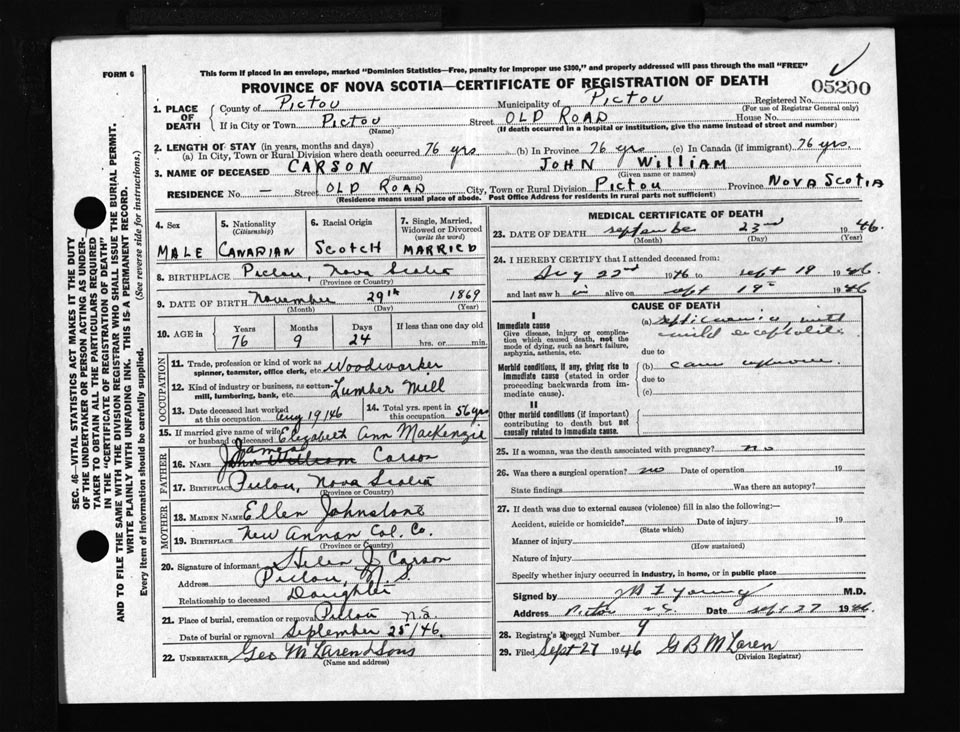 This form if placed in an envelope, marked "Dominion Statistics—Free, penalty for improper use $300," and properly addressed will pass through the mail "FREE"
FORM 6
PROVINCE OF NOVA SCOTIA—CERTIFICATE OF REGISTRATION OF DEATH
05200
1. PLACE OF DEATH
County of Pictou Municipality of Pictou Registered No.
(For use of Registrar General only)
If in City or Town Pictou Street OLD ROAD House No.
(Name) (If death occurred in a hospital or institution, give the name instead of street and number)
2. LENGTH OF STAY (in years, months and days)
(a) In City, Town or Rural Division where death occurred 76 yrs. (b) In Province 76 yrs (c) In Canada (if immigrant) 76 yrs.
3. NAME OF DECEASED CARSON JOHN WILLIAM
(Surname) (Given name or names)
RESIDENCE No. — Street OLD ROAD City, Town or Rural Division Pictou Province NOVA SCOTIA
(Residence means usual place of abode. Post Office Address for residents in rural parts not sufficient)
4. Sex 5. Nationality (Citizenship) 6. Racial Origin 7. Single, Married, Widowed or Divorced (write the word)
MALE CANADIAN SCOTCH MARRIED
8. BIRTHPLACE Pictou, Nova Scotia
(Province or Country)
9. DATE OF BIRTH November 29th 1869
(Month) (Day) (Year)
10. AGE in Years Months Days If less than one day old
76 9 24 hrs. or min.
OCCUPATION
11. Trade, profession or kind of work as spinner, teamster, office clerk, etc. Woodworker
12. Kind of industry or business, as cotton-mill, lumbering, bank, etc. Lumber Mill
13. Date deceased last worked at this occupation Aug 19/46 14. Total yrs. spent in this occupation 56 yrs
15. If married give name of wife or husband of deceased Elizabeth Ann MacKenzie
FATHER
James
16. NAME John William Carson
17. BIRTHPLACE Pictou, Nova Scotia
(Province or Country)
MOTHER
18. MAIDEN NAME Ellen Johnstone
19. BIRTHPLACE New Annan Col. Co.
(Province or Country)
20. Signature of informant Helen J Carson
Address Pictou, N.S.
Relationship to deceased Daughter
21. Place of burial, cremation or removal Pictou N.S.
Date of burial or removal September 25/46.
22. UNDERTAKER Geo McLaren & Sons
(Name and address)
MEDICAL CERTIFICATE OF DEATH
23. DATE OF DEATH September 23rd 1946.
(Month) (Day) (Year)
24. I HEREBY CERTIFY that I attended deceased from:
Aug 22nd 1946 to Sept 19 1946.
and last saw h im alive on Sept 19 1946
CAUSE OF DEATH
I
Immediate cause
Give disease, injury or complication which caused death, not the mode of dying, such as heart failure, asphyxia, asthenia, etc.
(a) septicaemia, with
mild encephalitis
due to
Morbid conditions, if any, giving rise to immediate cause (stated in order proceeding backwards from immediate cause).
(b)
due to
(c)
II
Other morbid conditions (if important) contributing to death but not causally related to immediate cause.
25. If a woman, was the death associated with pregnancy? no
26. Was there a surgical operation? no Date of operation 19
State findings Was there an autopsy?
27. If death was due to external causes (violence) fill in also the following:—
Accident, suicide or homicide? Date of injury 19
(State which)
Manner of injury
(How sustained)
Nature of injury
Specify whether injury occurred in industry, in home, or in public place
Signed by M F Young M.D.
Address Pictou N.S. Date Sept 27 1946.
28. Registrar's Record Number 9
29. Filed Sept 27 1946 G B McLaren
(Division Registrar)
SEC. 46—VITAL STATISTICS ACT MAKES IT THE DUTY
OF THE UNDERTAKER OR PERSON ACTING AS UNDER-
TAKER TO OBTAIN ALL THE PARTICULARS REQUIRED
IN THE "CERTIFICATE OF REGISTRATION OF DEATH"
AND TO FILE THE SAME WITH THE DIVISION REGISTRAR WHO SHALL ISSUE THE BURIAL PERMIT.
WRITE PLAINLY WITH UNFADING INK. THIS IS A PERMANENT RECORD.
Every item of information should be carefully supplied. (See reverse side for instructions.)